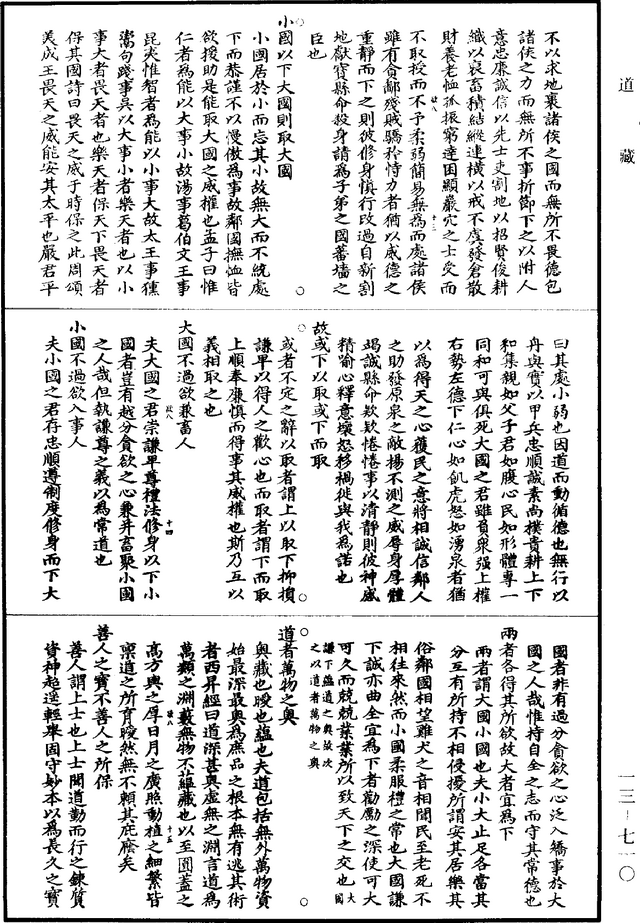 道藏
不以求地裏諸侯之國而無所不畏德包
諸侯之力而無所不事折節下之以附人
意忠廉誠信以先士吏割地以招賢俊耕
織以裒畜積結縱連橫以戒不虞發倉散
財養老恤孤振窮達困顯巖穴之士受而
不取授而不予柔弱簡易無為而處諸侯
雖有貪鄙殘賊驕矜恃力者猶以威德之
重靜而下之則彼修身慎行改過自新割
地獻寶縣命殺身請為子弟之國蕃墻之
臣也
小國以下大國則取大國
小國居於小而忘其小故無大而不統處
下而恭謹不以慢傲為事故鄰國撫恤皆
欲援助是能取大國之威權也孟子曰惟
仁者為能以大事小故湯事葛伯文王事
昆夷惟智者為能以小事大故太王事獯
鬻句踐事吳以大事小者樂天者也以小
事大者畏天者也樂天者保天下畏天者
保其國詩曰畏天之威于時保之此周頌
美成王畏天之威能安其太平也嚴君平
曰其處小弱也因道而動循德也無行以
丹與實以甲兵忠順誠素尚樸貴耕上下
和集親如父子君如腹心民如形體專一
同和可與俱死大國之君雖負眾强上權
右勢左德下仁心如飢虎怒如湧泉者猶
以為得天之心獲民之意將相誠信鄰人
之助發原泉之敵揚不測之威辱身厚體
竭誠縣命欵欵惓惓事以清靜則彼神感
精喻心釋意壞怨移禍徙與我為諾也
故或下以取或下而取
或者不定之辭以取者謂上以取下抑損
謙卑以得人之歡心也而取者謂下而取
上順奉廉慎而得事其威權也斯乃互以
義相取之也
大國不過欲兼畜人
夫大國之君崇謙卑尊禮法修身以下小
國者豈有越分貪欲之心兼并畜聚小國
之人哉但執謙尊之義以為常道也
小國不過欲入事人
夫小國之君存忠順遵制度修身而下大
國者非有過分貪欲之心泛入矯事於大
國之人哉惟持自全之志而守其常德也
兩者各得其所欲故大者宜為下
兩者謂大國小國也夫小大止足各當其
分互有所持不相侵擾所謂安其居樂其
俗鄰國相望雞犬之音相聞民至老死不
相往來然而小國柔服禮之常也大國謙
下誠亦曲全宜為下者勸勵之深使可大
可久而兢兢業業所以致天下之交也大國
謙下蘊道之奧故次之以道者萬物之奧
道者萬物之奧
奧藏也曖也蘊也夫道包括無外萬物資
始最深最奧為庶品之根本無有逃其術
者西昇經曰道深甚奧虛無之淵言道為
萬類之淵藪無物不蘊藏也以至圓蓋之
高方輿之厚日月之廣照動植之細繁皆
稟道之所育曖然無不賴其庇廕矣
善人之寶不善人之所保
善人謂上士也上士聞道勤而行之鍊質
資神超遥輕舉固守妙本以為長久之寶
一三－七一〇